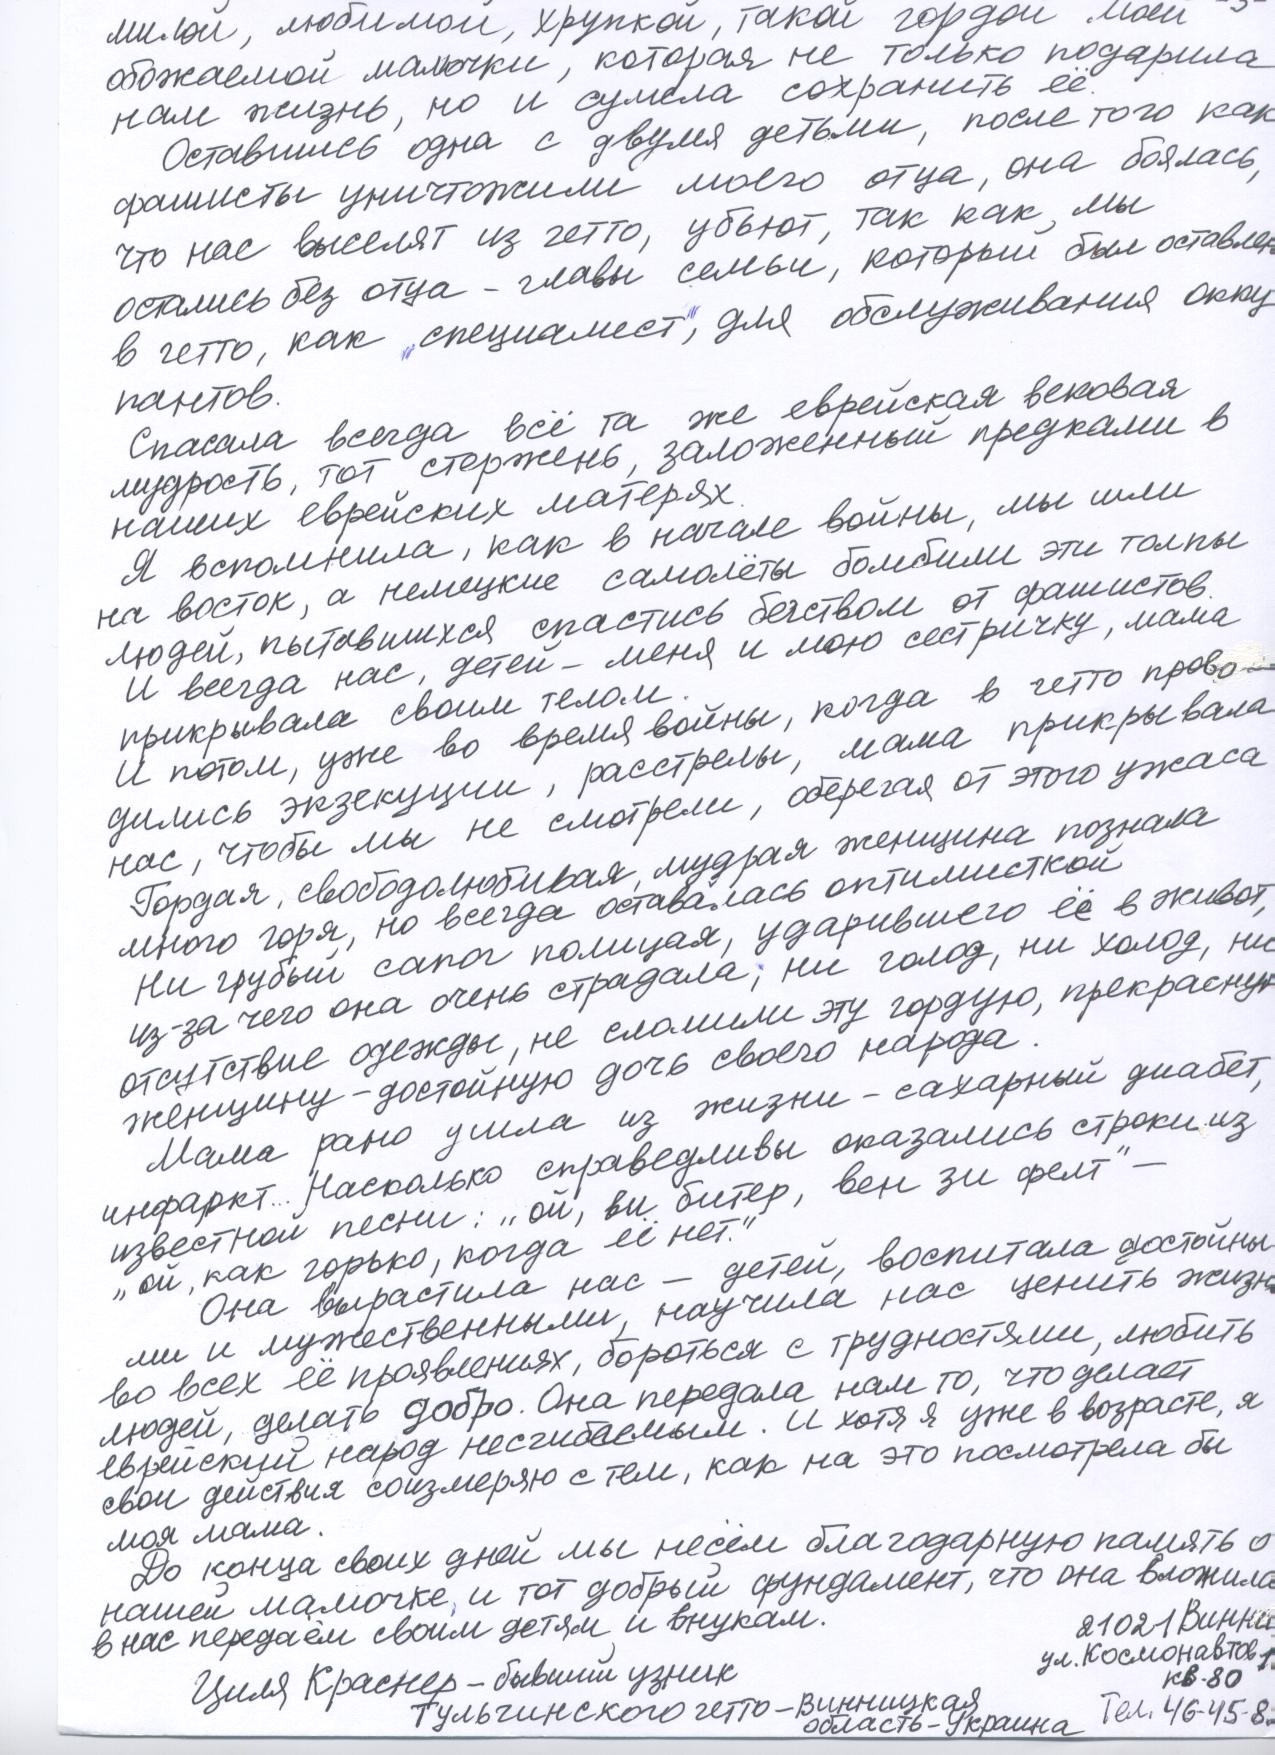 -3-
милой, любимой, хрупкой, такой гордой моей
обожаемой мамочки, которая не только подарила
нам жизнь, но и сумела сохранить её.
Оставшись одна с двумя детьми, после того как
фашисты уничтожили моего отца, она боялась,
что нас выселят из гетто, убьют, так как, мы
остались без отца – главы семьи, который был оставлен
в гетто, как „специалист", для обслуживания окку
пантов.
Спасала всегда всё та же еврейская вековая
мудрость, тот стержень, заложенный предками в
наших еврейских матерях.
Я вспомнила, как в начале войны, мы шли
на восток, а немецкие самолёты бомбили эти толпы
людей, пытавшихся спастись бегством от фашистов.
И всегда нас, детей – меня и мою сестричку, мама
прикрывала своим телом.
И потом, уже во время войны, когда в гетто прово-
дились экзекуции, расстрелы, мама прикрывала
нас, чтобы мы не смотрели, оберегая от этого ужаса
Гордая, свободолюбивая, мудрая женщина познала
много горя, но всегда оставалась оптимисткой
Ни грубый сапог полицая, ударившего её в живот,
из-за чего она очень страдала, ни голод, ни холод, ни
отсутствие одежды, не сломили эту гордую, прекрасную
женщину – достойную дочь своего народа.
Мама рано ушла из жизни – сахарный диабет,
инфаркт... Насколько справедливы оказались строки из
известной песни: „ой, ви битер, вен зи фелт" –
„ой, как горько, когда её нет."
Она вырастила нас – детей, воспитала достойны-
ми и мужественными, научила нас ценить жизнь
во всех её проявлениях, бороться с трудностями, любить
людей, делать добро. Она передала нам то, что делает
еврейский народ несгибаемым. И хотя я уже в возрасте, я
свои действия соизмеряю с тем, как на это посмотрела бы
моя мама.
До конца своих дней мы несём благодарную память о
нашей мамочке, и тот добрый фундамент, что она вложила
в нас передаём своим детям и внукам.
21021 Винни
ул. Космонавтов
кв-80
Тел. 46-45-8
Циля Краснер – бывший узник
Тульчинского гетто – Винницкая
область – Украина